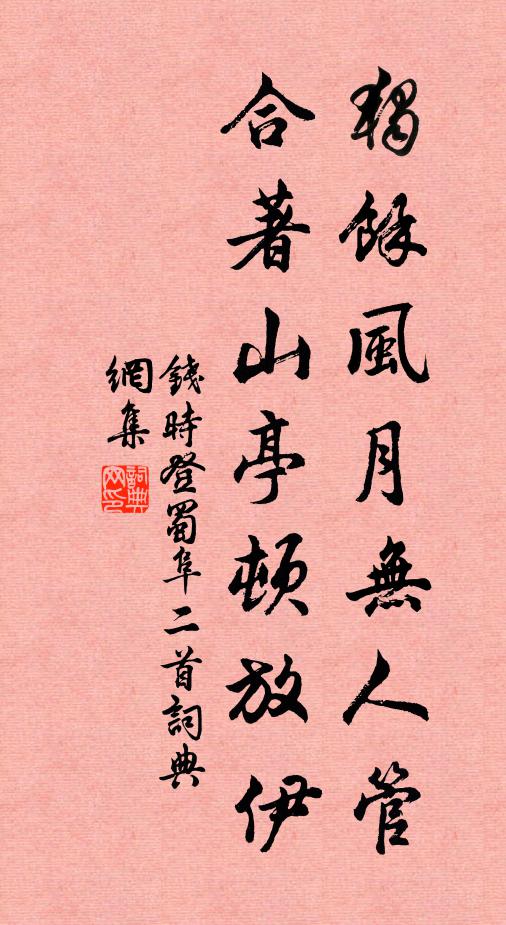 獨餘風月無人管
合著山亭頓放伊
錢時登蜀阜二首詞典
網集
詞典網印